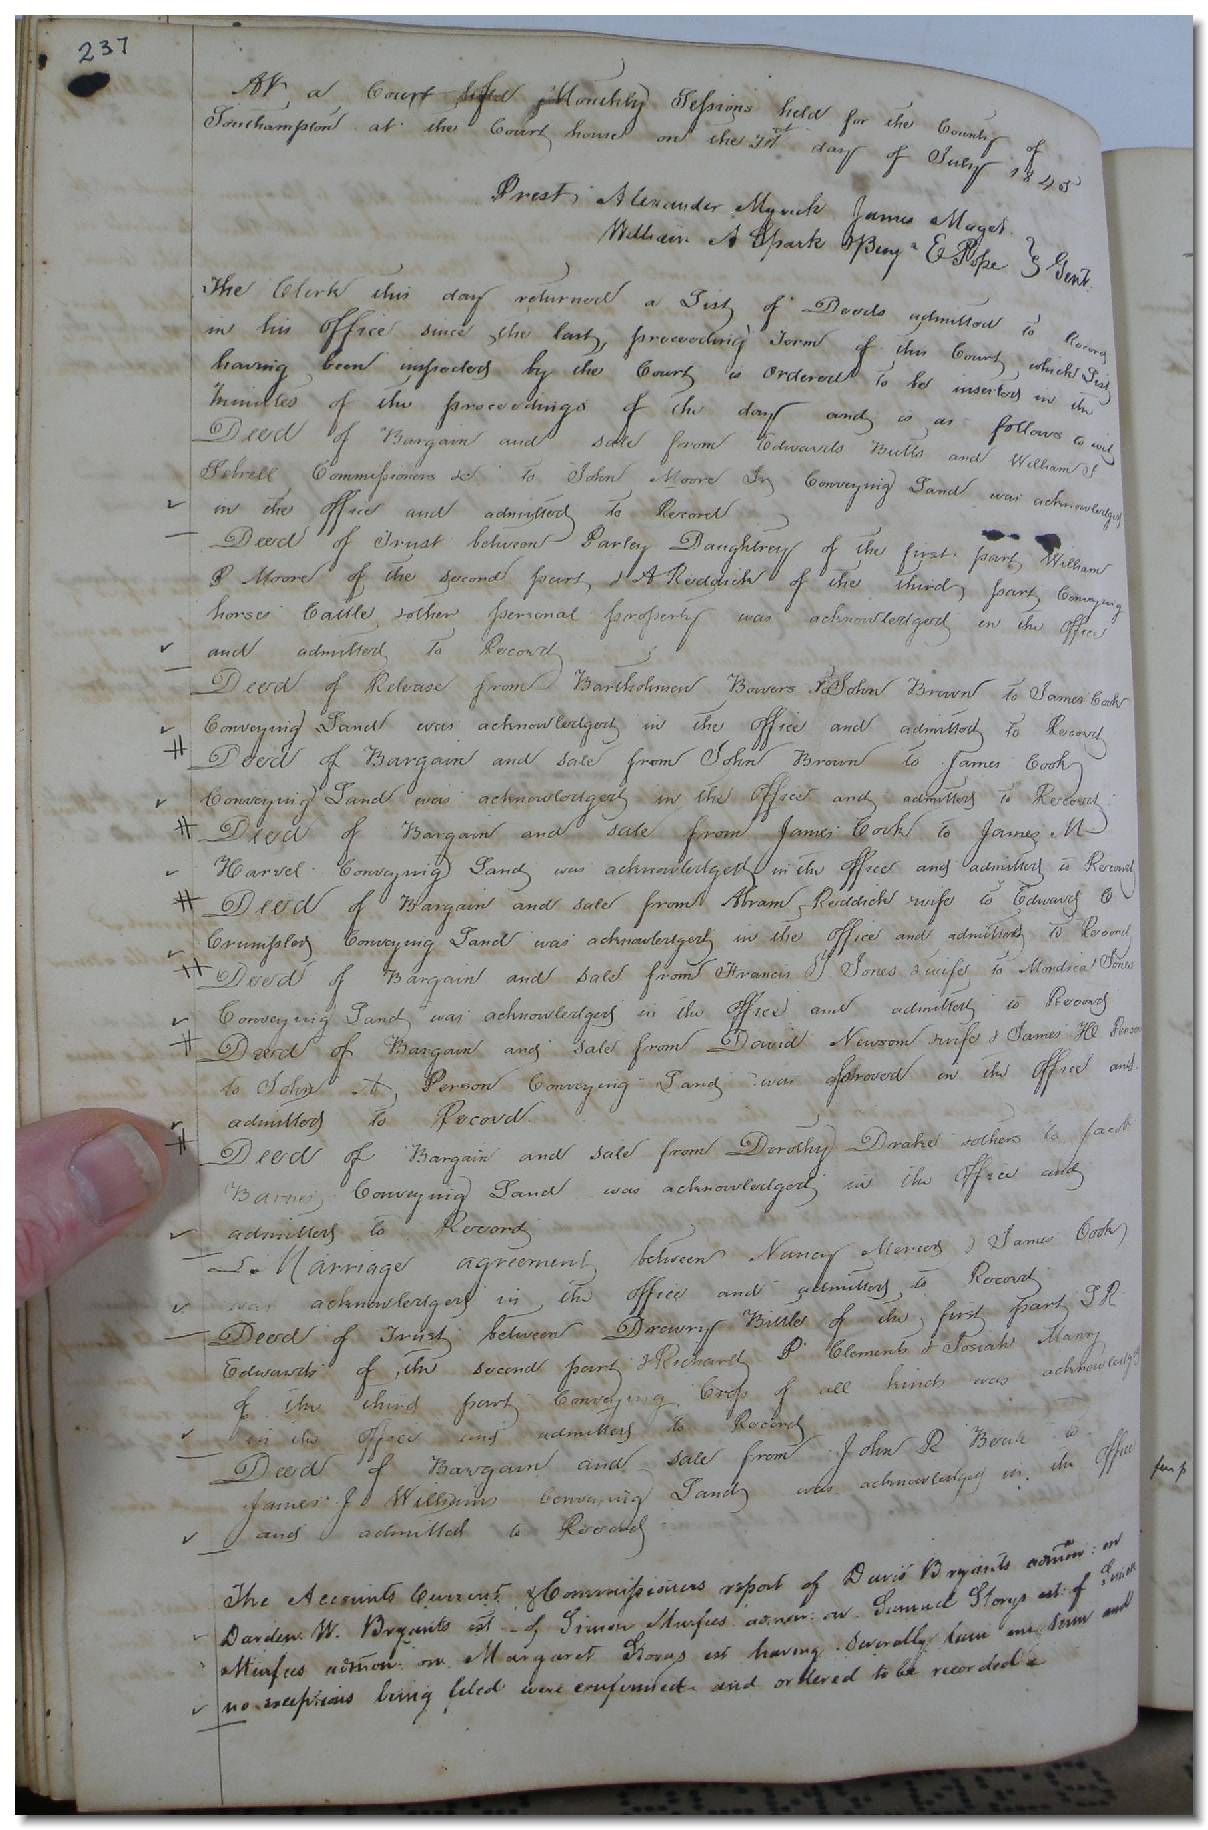 237
At a Court held Monthly Sessions held for the County of
Southampton at the Court house on the 21st day of July 1845
Prest. Alexander Myrick James Maget
William A Spark & Benjn E Pope } Gent.
The Clerk this day returned a List of Deeds admitted to Record
in his Office since the last proceeding Term of this Court which List
having been inspected by the Court is Ordered to be inserted in the
Minutes of the proceedings of the day and is as follows to wit
Deed of Bargain and sale from Edwards Butts and William
Sebrell Commissioners &c to John Moore Conveying Land was acknowledged
in the Office and admitted to Record
Deed of Trust between Parley Daughtrey of the first part William
P Moore of the second part & A Reddick of the third part Conveying
horses Cattle & other personal property was acknowledged in the Office
and admitted to Record
Deed of Release from Bartholmew Bowers & John Brown to James Cook
Conveying Land was acknowledged in the Office and admitted to Record
Deed of Bargain and sale from John Brown to James Cook
Conveying Land was acknowledged in the Office and admitted to Record
Deed of Bargain and sale from James Cook to James M
Harvel Conveying Land was acknowledged in the Office and admitted to Record
Deed of Bargain and sale from Abram Reddick & wife to Edward
Crumpler Conveying Land was acknowledged in the Office and admitted to Record
Deed of Bargain and sale from Francis Jones & wife to Jones
Conveying Land was acknowledged in the Office and admitted to Record
Deed of Bargain and sale from David Newsom & wife & James H
to John Person Conveying Land was proved in the Office and
admitted to Record
Deed of Bargain and sale from Dorothy Drake & others to Jacob
Barnes Conveying Land was acknowledged in the Office and
admitted to Record
Marriage agreement between Nancy & James Cook
was acknowledged in the Office and admitted to Record
Deed of Trust between Drewry Bittle of the first part
Edwards of the second part & Richard P Clements & Josiah Manry
of the third part Conveying Crop of all kinds was acknowledged
in the Office and admitted to Record
Deed of Bargain and sale from John R to
James J Williams Conveying Land was acknowledged in the Office
and admitted to Record
The Accounts Current & Commissioners report of Davis Bryants admor: on
Darden W. Bryants est of Simon Murfees admor: on Samuel Storys est of Simon
Murfees admor: on Margaret Storys est having severally been and
no exceptions being filed were confirmed and ordered to be recorded